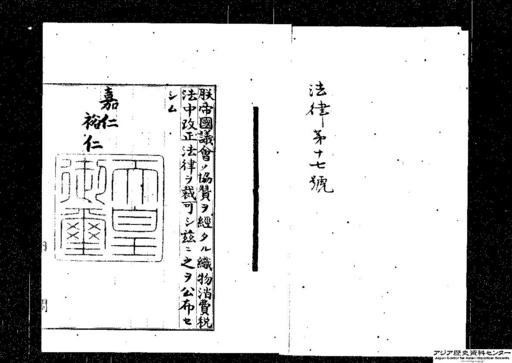 法律第十七號
朕帝國議會ノ協贊ヲ經タル織物消費税
法中改正法律ヲ裁可シ茲ニ之ヲ公布セ
シム
嘉仁
裕仁
天皇
御璽
アジア歴史資料センター
Japan Center for Asian Historical Records